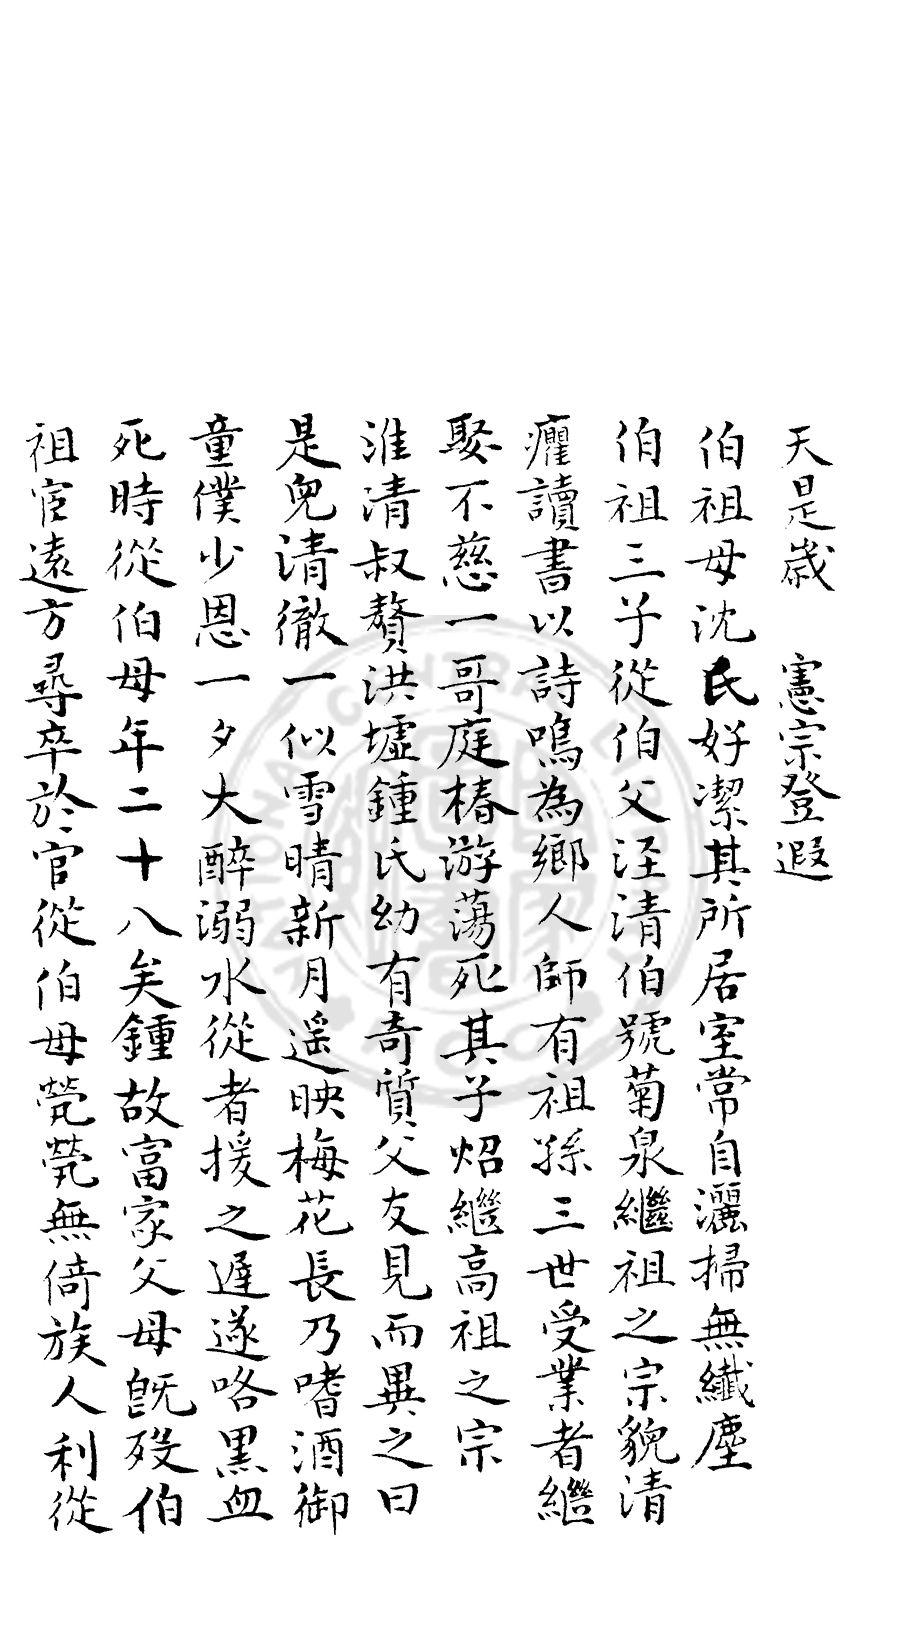 天是歲　憲宗登遐
伯祖母沈氏好潔其所居室常自灑掃無纖塵
伯祖三子從伯父涇清伯號菊泉繼祖之宗貌清
癯讀書以詩鳴為鄉人師有祖孫三世受業者繼
娶不慈一哥庭椿游蕩死其子炤繼高祖之宗
淮清叔贅洪墟鍾氏幼有奇質父友見而異之曰
是兒清徹一似雪晴新月遥映梅花長乃嗜酒御
童僕少恩一夕大醉溺水從者援之遲遂咯黑血
死時從伯母年二十八矣鍾故富家父母既歿伯
祖宦遠方尋卒於官從伯母煢煢無倚族人利從